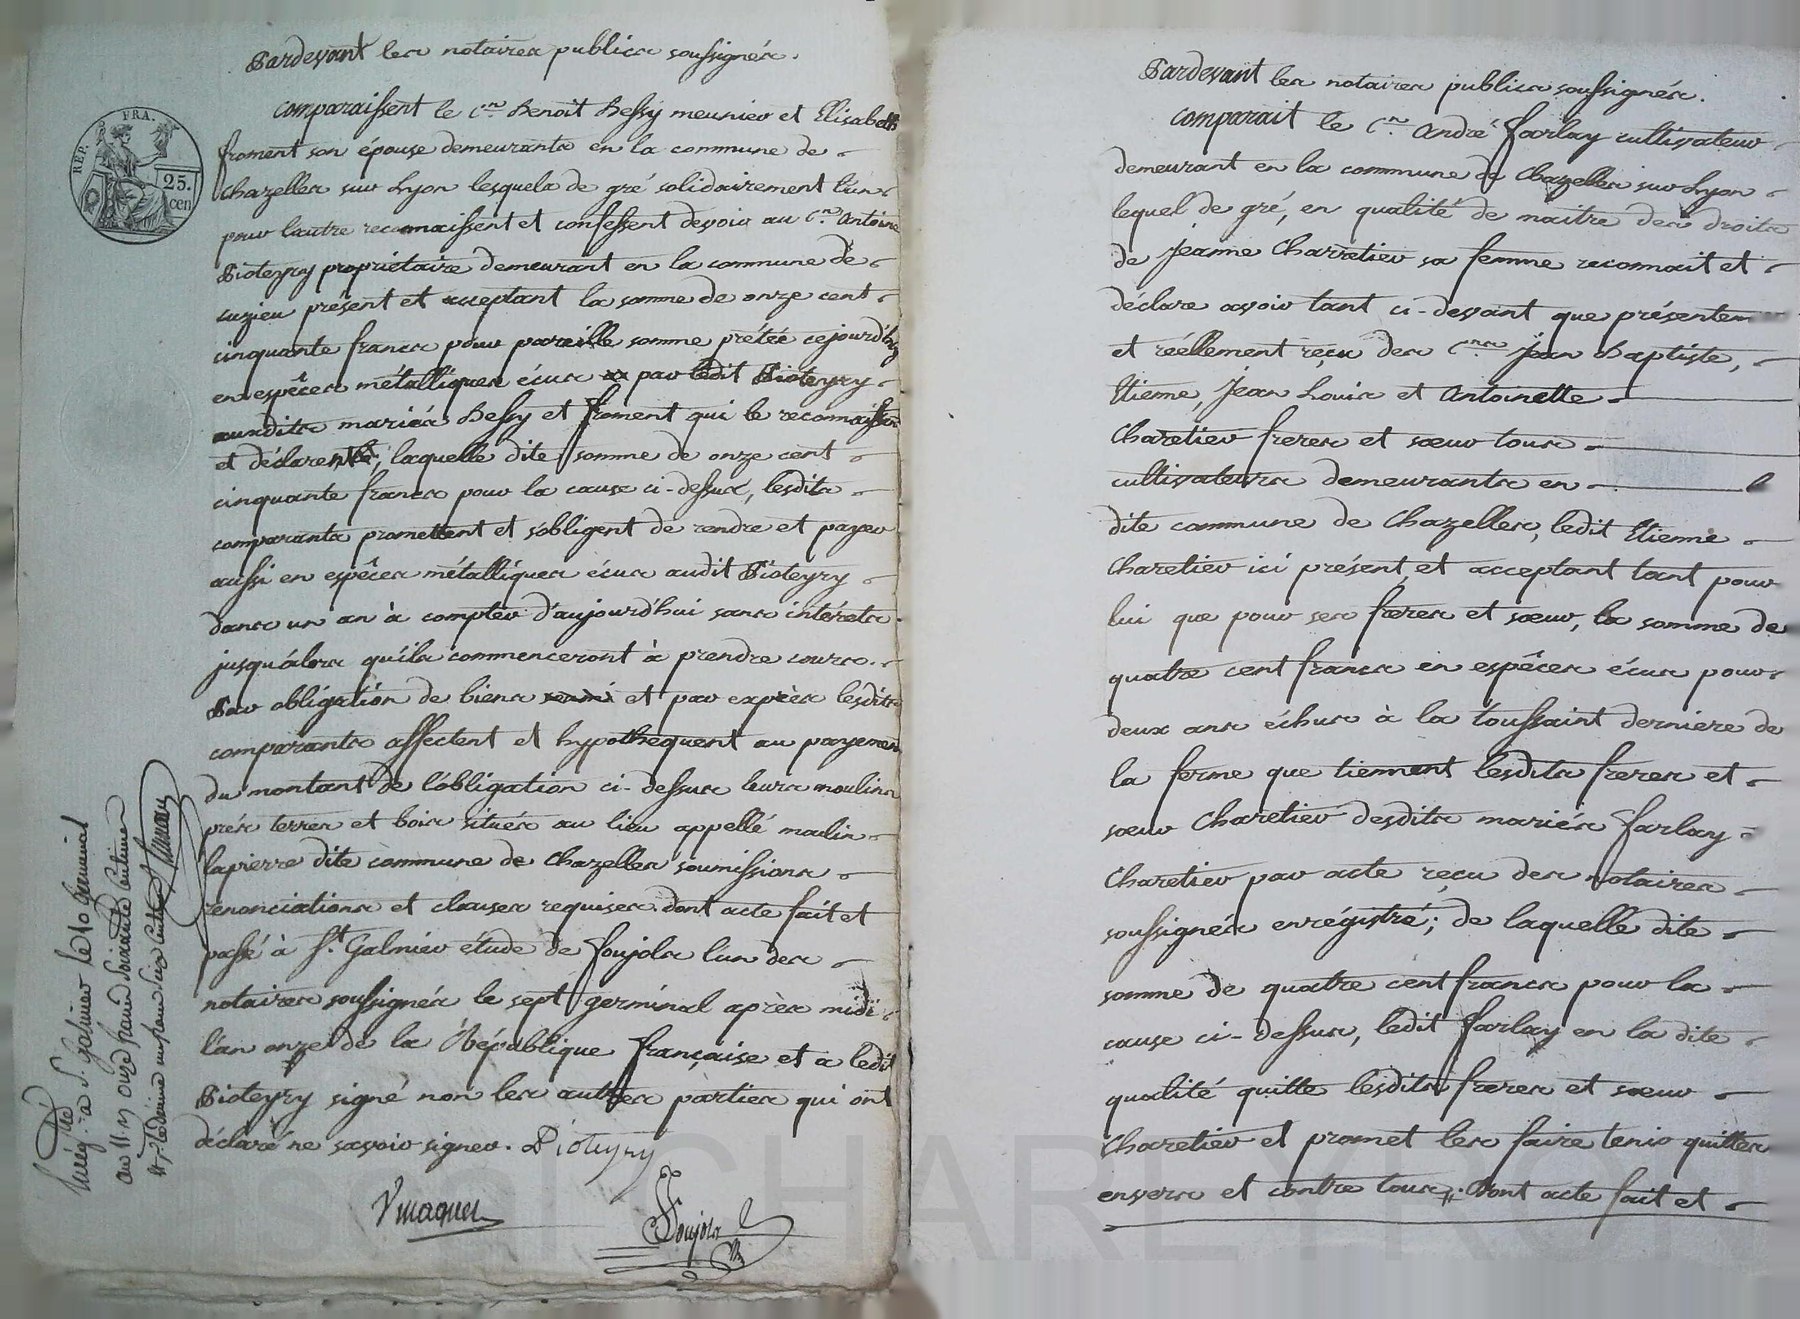 Pardevant les notaires publics soussignés.
REP. FRA.
25.
cen
comparaissent le C.en Benoit Bessy meunier et Elisabeth
froment son épouse demeurants en la commune de
Chazelles sur Lyon lesquels de gré solidairement l'un
pour l'autre reconnaissent et confessent devoir au C.en Antoine
Pioteyry propriétaire demeurant en la commune de
cuzieu présent et acceptant la somme de onze cent
cinquante francs pour pareille somme prétée cejourd'huy
en espêces métalliques écus par ledit Pioteyry
auxdits mariés Bessy et froment qui le reconnaissent
et déclarent, laquelle dite somme de onze cent
cinquante francs pour la cause ci-dessus, lesdits
comparants promettent et s'obligent de rendre et payer
aussi en espêces métalliques écus audit Pioteyry
dans un an à compter d'aujourd'hui sans intérets
jusqu'alors qu'ils commenceront à prendre cours.
Par obligation de biens et par exprès lesdits
comparants affectent et hypothequent au payement
du montant de l'obligation ci-dessus leurs moulins
prés terres et bois situés au lieu appellé moulin
lapierre dite commune de Chazelles soumissions
renonciations et clauses requises. dont acte fait et
passé à S.t Galmier étude de Soujols l'un des
notaires soussignés le sept germinal après midi
l'an onze de la République française et a ledit
Pioteyry signé non les autres parties qui ont
déclaré ne savoir signer. Pioteyry
Vmaguet
Soujols
Enrég.té à S. galmier le 10 Germinal
an 11. R onze francs soixante centimes
Pardevant les notaires publics soussignés.
comparait le C.en André farlay cultivateur
demeurant en la commune de Chazelles sur Lyon
lequel de gré, en qualité de maitre des droits
de jeanne Charretier sa femme reconnait et
déclare avoir tant ci-devant que présentement
et réellement reçu des C.ens jean Baptiste,
Etienne, jean Louis et Antoinette
Charetier freres et sœur tous
cultivateurs demeurants en
dite commune de Chazelles, ledit Etienne
Charetier ici présent et acceptant tant pour
lui que pour ses freres et sœur, la somme de
quatre cent francs en espêces écus pour
deux ans échus à la toussaint derniere de
la ferme que tiennent lesdits freres et
sœur Charetier desdits mariés farlay
Charetier par acte reçu des notaires
soussignés enrégistré; de laquelle dite
somme de quatre cent francs pour la
cause ci-dessus, ledit farlay en la dite
qualité quitte lesdits freres et sœur
Charetier et promet les faire tenir quittes
envers et contre tous,, Dont acte fait et
CHARLYRON